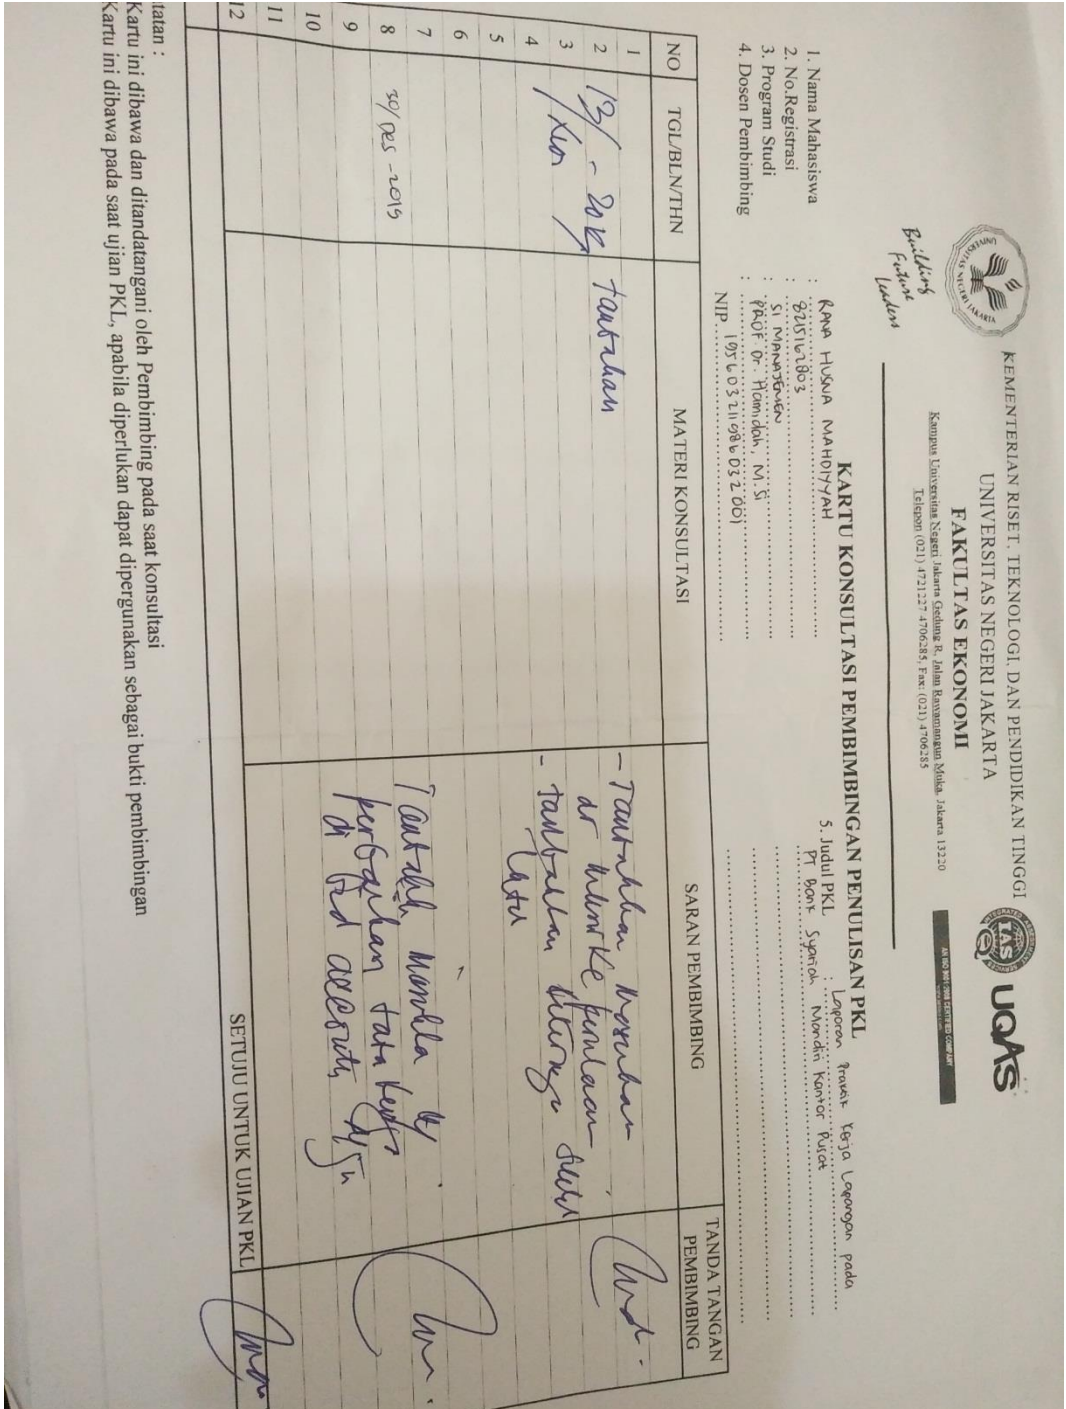 KEMENTERIAN RISET, TEKNOLOGI, DAN PENDIDIKAN TINGGI
UNIVERSITAS NEGERI JAKARTA
FAKULTAS EKONOMI
Kampus Universitas Negeri Jakarta Gedung R, Jalan Rawamangun Muka, Jakarta 13220
Telepon (021) 4721227 4706285, Fax: (021) 4706285
UNIVERSITAS NEGERI JAKARTA
Building
Future
Leaders
TAS
UQAS
AN ISO 9001:2008 CERTIFIED COMPANY
KARTU KONSULTASI PEMBIMBINGAN PENULISAN PKL
1. Nama Mahasiswa : RANA HUSNA MAHDIYYAH
2. No.Registrasi : 8215162803
3. Program Studi : S1 MANAJEMEN
4. Dosen Pembimbing : PROF. Dr. Hamidah, M.Si
NIP. 195603211986032001
5. Judul PKL : Laporan Praktik Kerja Lapangan pada
PT Bank Syariah Mandiri Kantor Pusat
NO TGL/BLN/THN MATERI KONSULTASI SARAN PEMBIMBING TANDA TANGAN PEMBIMBING
1
2
3
4
5
6
7
8 30/Des-2019
9
10
11
12 SETUJU UNTUK UJIAN PKL
tatan :
Kartu ini dibawa dan ditandatangani oleh Pembimbing pada saat konsultasi
Kartu ini dibawa pada saat ujian PKL, apabila diperlukan dapat dipergunakan sebagai bukti pembimbingan